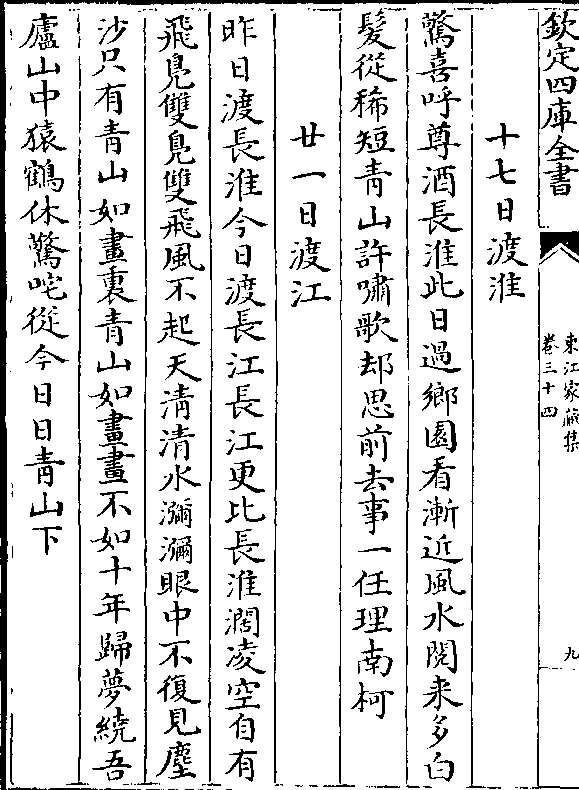 欽定四庫全書
東江家藏集
卷三十四
九
十七日渡淮
驚喜呼尊酒長淮此日過鄉園看漸近風水閱来多白
髮從稀短青山許嘯歌却思前去事一任理南柯
廿一日渡江
昨日渡長淮今日渡長江長江更比長淮濶凌空自有
飛鳧雙鳧雙飛風不起天清清水瀰瀰眼中不復見塵
沙只有青山如畫裏青山如畫畫不如十年歸夢繞吾
廬山中猿鶴休驚咤從今日日青山下